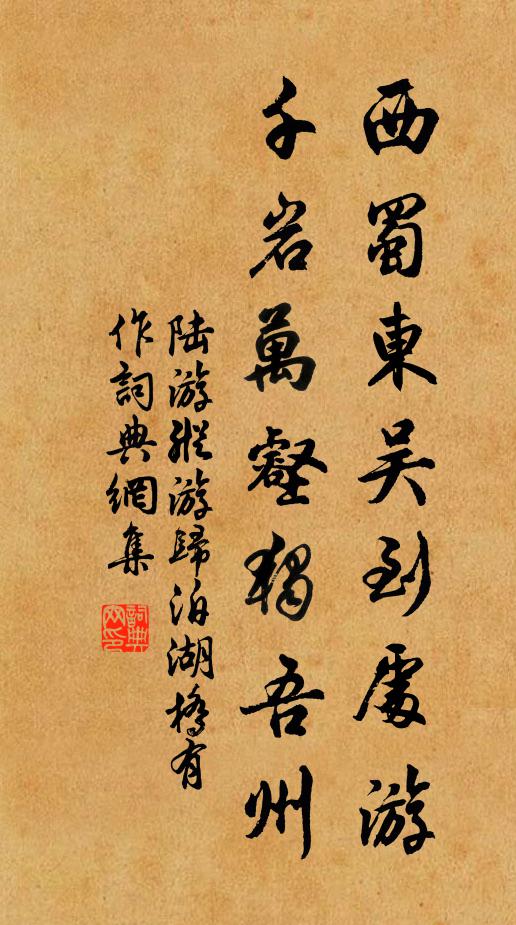 西蜀東吴到處游
千岩萬壑獨吾州
陆游縱游歸泊湖橋有
作詞典網集
詞典
网印